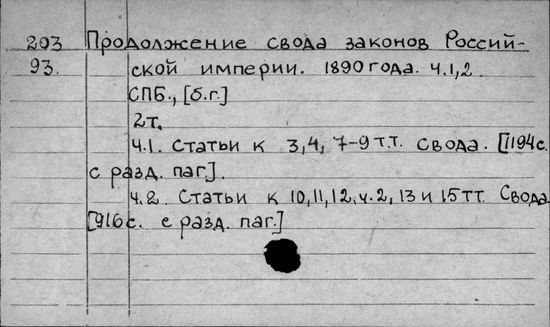 293 Продолжение свода законов Россий-
93. ской империи. 1890 года. ч.1,2.
СПБ., [б.г.]
2т.
ч.1. Статьи к 3,4, 7-9 т.т. Свода. [1194с.
с разд. паг].
ч.2. Статьи к 10,11,12,ч.2, 13 и 15 тт. Свода
[916с. с разд. паг.]